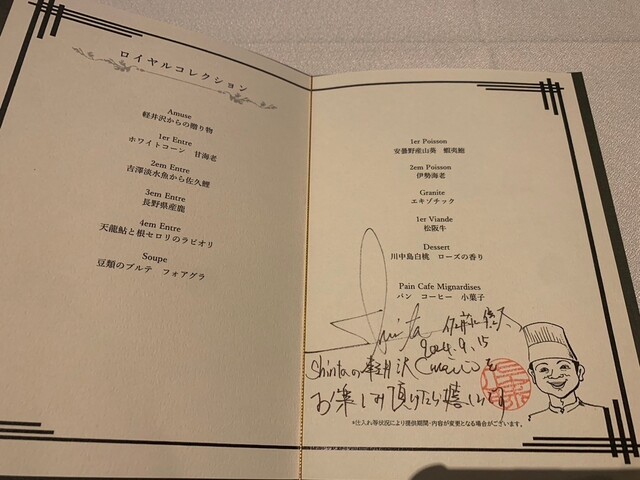 ロイヤルコレクション
Amuse
軽井沢からの贈り物
1er Entre
ホワイトコーン 甘海老
2em Entre
吉澤淡水魚から佐久鯉
3em Entre
長野県産鹿
4em Entre
天龍鮎と根セロリのラビオリ
Soupe
豆類のブルテ フォアグラ
1er Poisson
安曇野産山葵 蝦夷鮑
2em Poisson
伊勢海老
Granite
エキゾチック
1er Viande
松阪牛
Dessert
川中島白桃 ローズの香り
Pain Cafe Mignardises
パン コーヒー 小菓子
Shinta
2024.9.15
Shintaの軽井沢 Cuisineを
お楽しみ頂けたら嬉しいです
*仕入れ等状況により提供期間・内容が変更となる場合がございます。